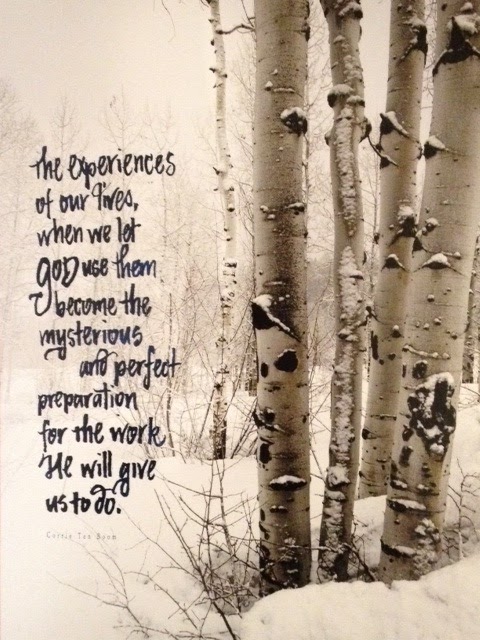 the experiences
of our lives,
when we let
GOD use them
become the
mysterious
and perfect
preparation
for the work
He will give
us to do.
Corrie Ten Boom